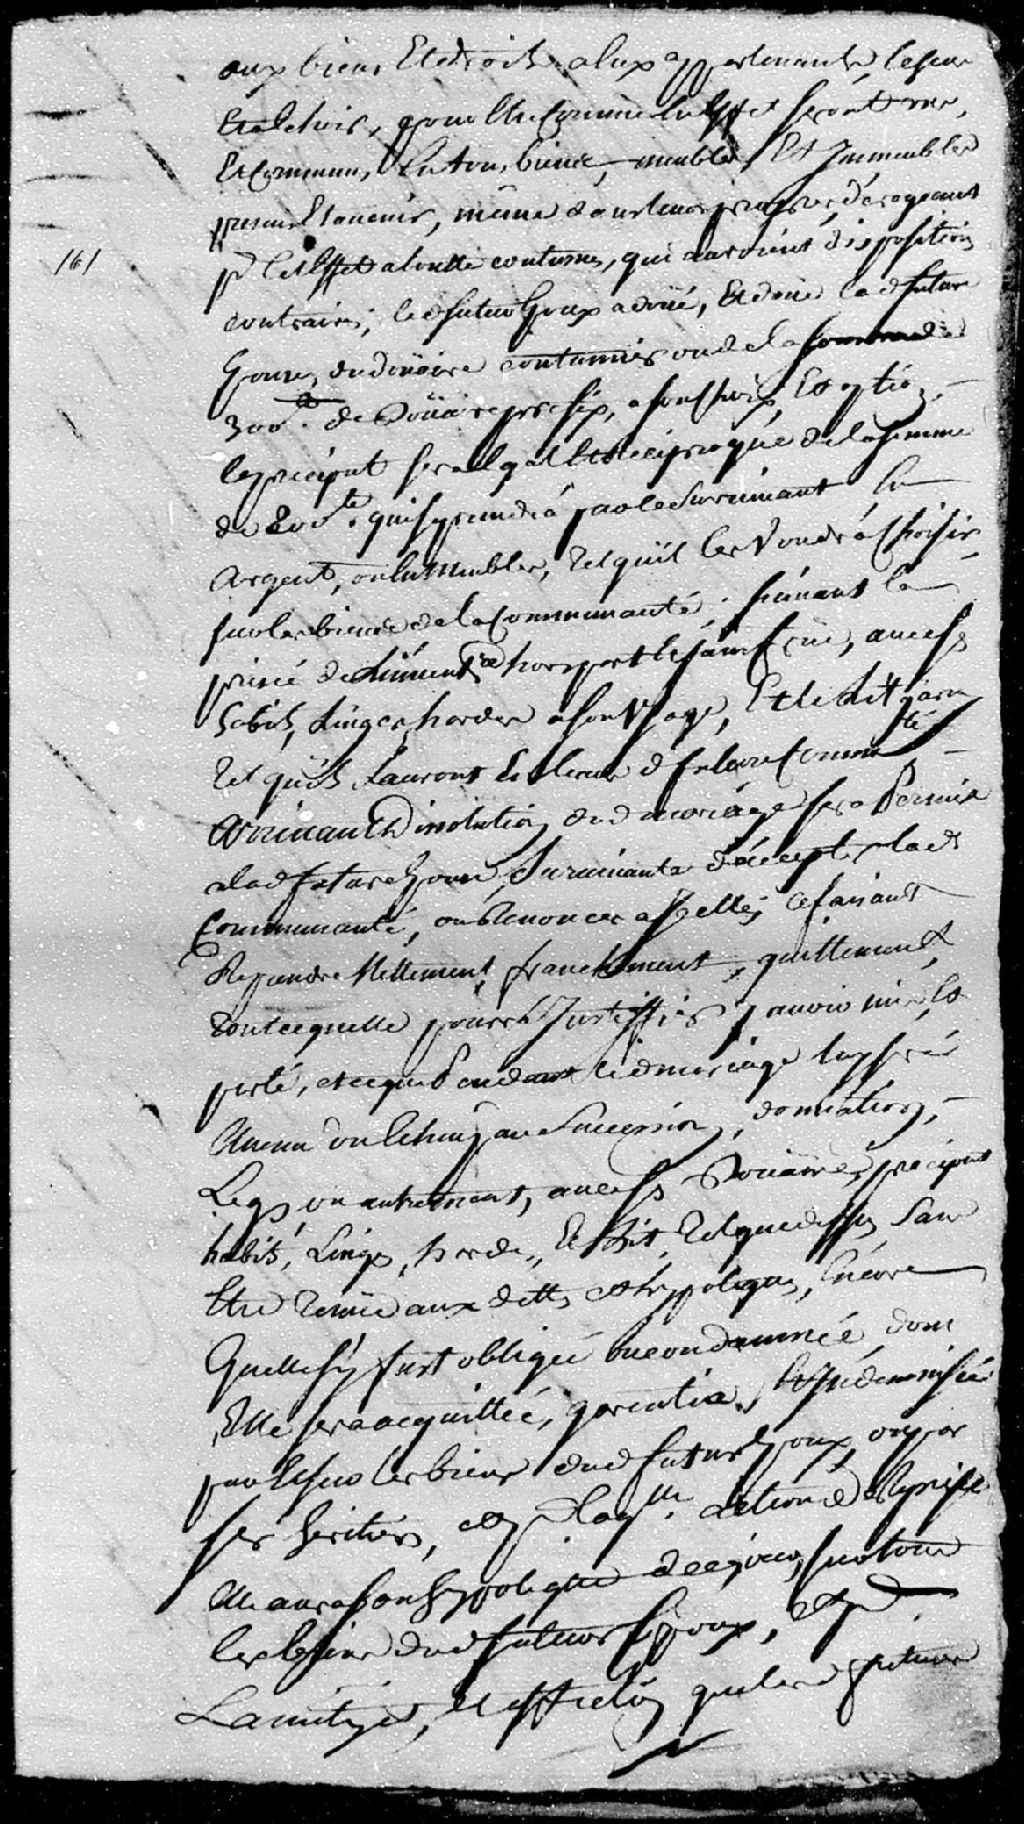 aux biens Et droits a Eux appartenants, lesquels
Et Echoir, pour Etre comme En Effet seront uns,
Et Communs, En tous biens, meubles Et Immeubles
presents Et avenir, même dans leurs propres, derogeant
/6/
pr Cet Effet a toutte coutumes, qui auroient disposition
contraire; led futur Epoux a doüé, Et doüe lad future
Epouse, du doüaire coutumier ou de la somme de
300 # de Doüaire prefix, a son choix, Et option
le preciput sera Egal Et Reciproque de la somme
de 200 # qui se prendra par le Survivant En
Argent, ou En Meubles, tel qu'il les Voudra Choisir
sur les biens de la Communauté, suivant la
prisée de l'inventre hors part Et sans Crüe, avec ses
habits, Linges, hardes a son Usage, Et le Lit garny
tel qu'ils L'auront Lors de lad future Commté
Avenant la dissolution dud mariage sera Permis
a lad future Epouse Survivante d'accepter lad
Communauté, ou Renoncer a Icelle, ce faisant
Reprendre Nettement, franchement, quittement,
tout ce qu'elle pourra Justiffier y avoir mis Et
porté, et ce que Pendant led mariage luy sera
Avenu ou Echu par Succession, donnation,
Legs ou autrement, avec ses Doüaire, preciput
habits, Linges, hardes, Et Lit, tel que dessus, Sans
Etre tenüe aux dettes et hypoteques, Encore
Quelle s'y fust obligée ou condamnée, dont
Elle sera acquittée, garentie, Et Indemnisée
par Et sur les biens dud futur Epoux, ou par
ses heritiers, action de Reprise
Elle aura son hypoteque de ce jour, sur tous
les biens dud futur Epoux, &
L'amityé, Et affection que lesd futurs